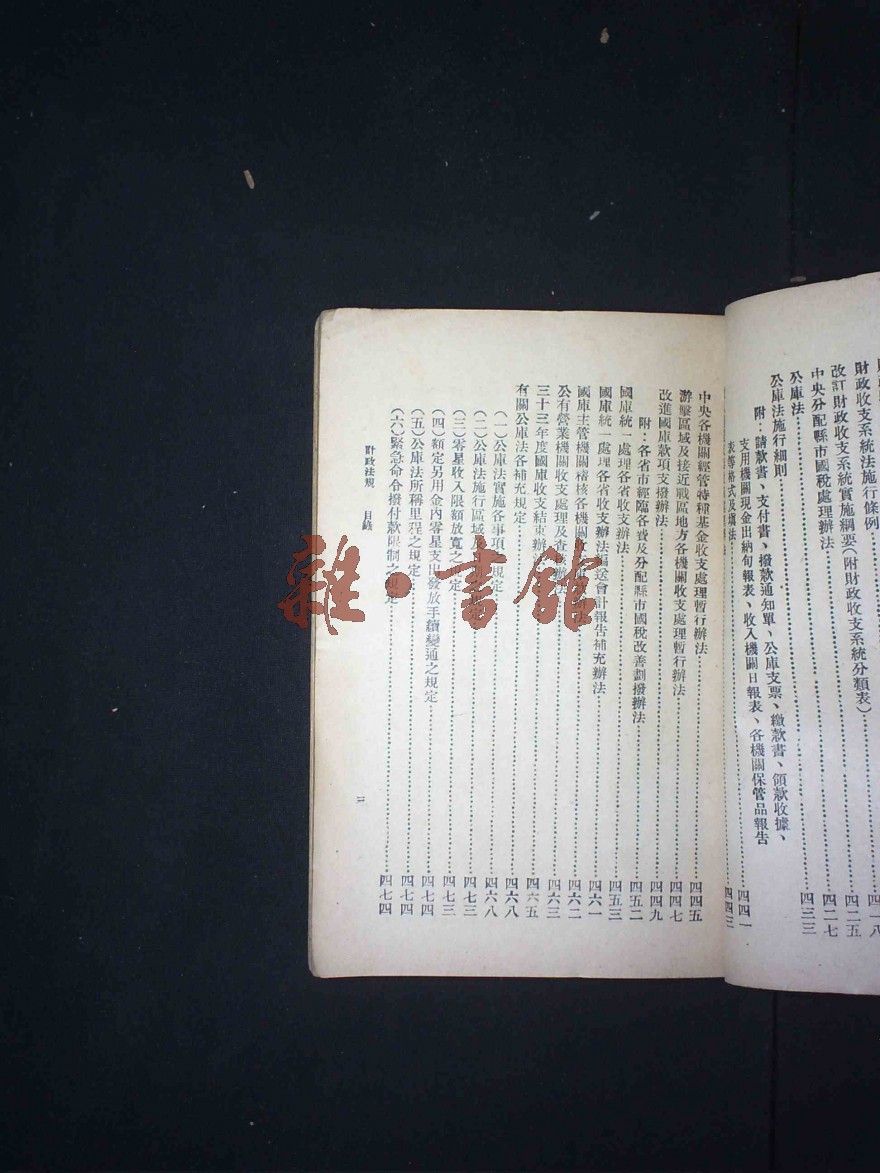 財政收支系統法施行條例⋯⋯四一八
改訂財政收支系統實施綱要(附財政收支系統分類表)⋯⋯四二五
中央分配縣市國稅處理辦法⋯⋯四二七
公庫法⋯⋯四三三
公庫法施行細則
附：請款書、支付書、撥款通知單、公庫支票、繳款書、領款收據、
支用機關現金出納旬報表、收入機關日報表、各機關保管品報告
表等格式及填法⋯⋯四四一
四四三
中央各機關經管特種基金收支處理暫行辦法⋯⋯四四五
游擊區域及接近戰區地方各機關收支處理暫行辦法⋯⋯四四七
改進國庫款項支撥辦法⋯⋯四四九
附：各省市經臨各費及分配縣市國稅改善劃撥辦法⋯⋯四五二
國庫統一處理各省收支辦法⋯⋯四五三
國庫統一處理各省收支辦法編送會計報告補充辦法⋯⋯四六一
國庫主管機關稽核各機關收支辦法⋯⋯四六二
公有營業機關收支處理及查核辦法⋯⋯四六三
三十三年度國庫收支結束辦法⋯⋯四六五
有關公庫法各補充規定⋯⋯四六八
(一)公庫法實施各事項之規定⋯⋯四六八
(二)公庫法施行區域及日期之規定⋯⋯四七三
(三)零星收入限額放寬之規定⋯⋯四七三
(四)額定另用金內零星支出發放手續變通之規定⋯⋯四七四
(五)公庫法所稱里程之規定⋯⋯四七四
(六)緊急命令撥付款限制之規定⋯⋯四七四
財政法規 目錄
三
雜·書館